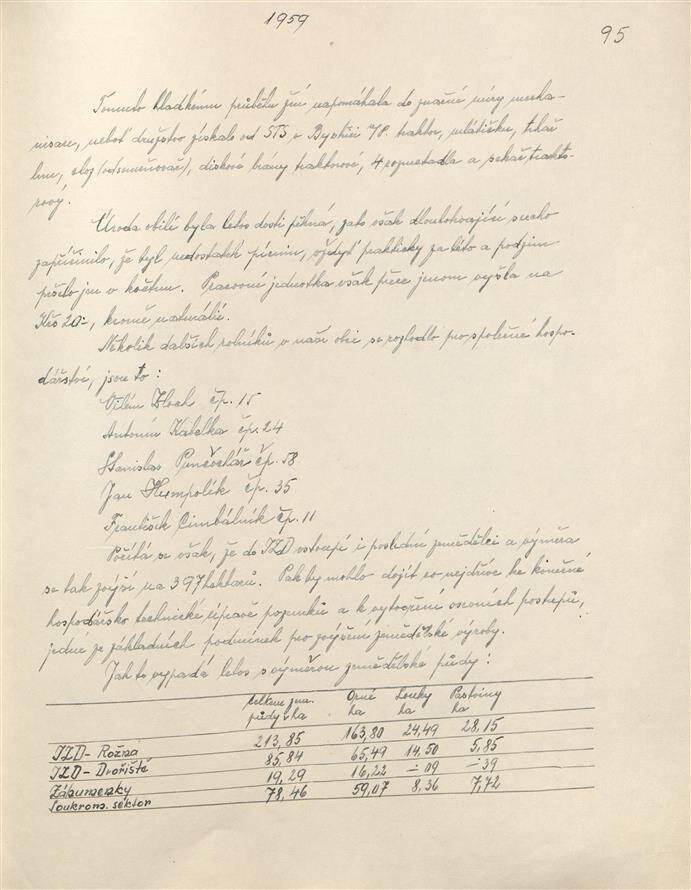 1959
95
Tomuto hladkému průběhu žní napomáhala do značné míry mecha-
nisace, neboť družstvo získalo od STS v Bystřici n/P. traktor, mlátičku,
lenu, (odsemeňovač), diskové brány traktorové, 4 rozmetadla a sekač trakto-
rový.
Úroda obilí byla letos dosti pěkná, zato však dlouhotrvající sucho
zapříčinilo, že byl nedostatek pícnin, vždyť prakticky za léto a podzim
pršelo jen v květnu. Pracovní jednotka však přece jenom vyšla na
Kčs 20.-, kromě naturálií.
Několik dalších rolníků v naše obci se rozhodlo pro společné hospo-
dářství, jsou to :
Vilém Bloch čp. 15
Antonín Kabelka čp. 24
Stanislav Punčochář čp. 58
Jan Humpolík čp. 35
František Cimbálník čp. 11
Počítá se však, že do JZD vstoupí i poslední zemědělci a výměra
se tak zvýší na 397 hektarů. Pak by mohlo dojít co nejdříve ke konečné
hospodářsko technické úpravě pozemků a k vytvoření osevních postupů,
jedné ze základních podmínek pro zvýšení zemědělské výroby.
Jak to vypadá letos s výměrou zemědělské půdy :
Celkem zem. půdy ha Orné ha Louky ha Pastviny ha
JZD - Rožná 213,85 163,80 24,49 28,15
JZD - Dvořiště 85,84 65,49 14,50 5,85
Záhumenky 19,29 16,22 -09 -39
Soukrom. sektor 78,46 59,07 8,36 7,72